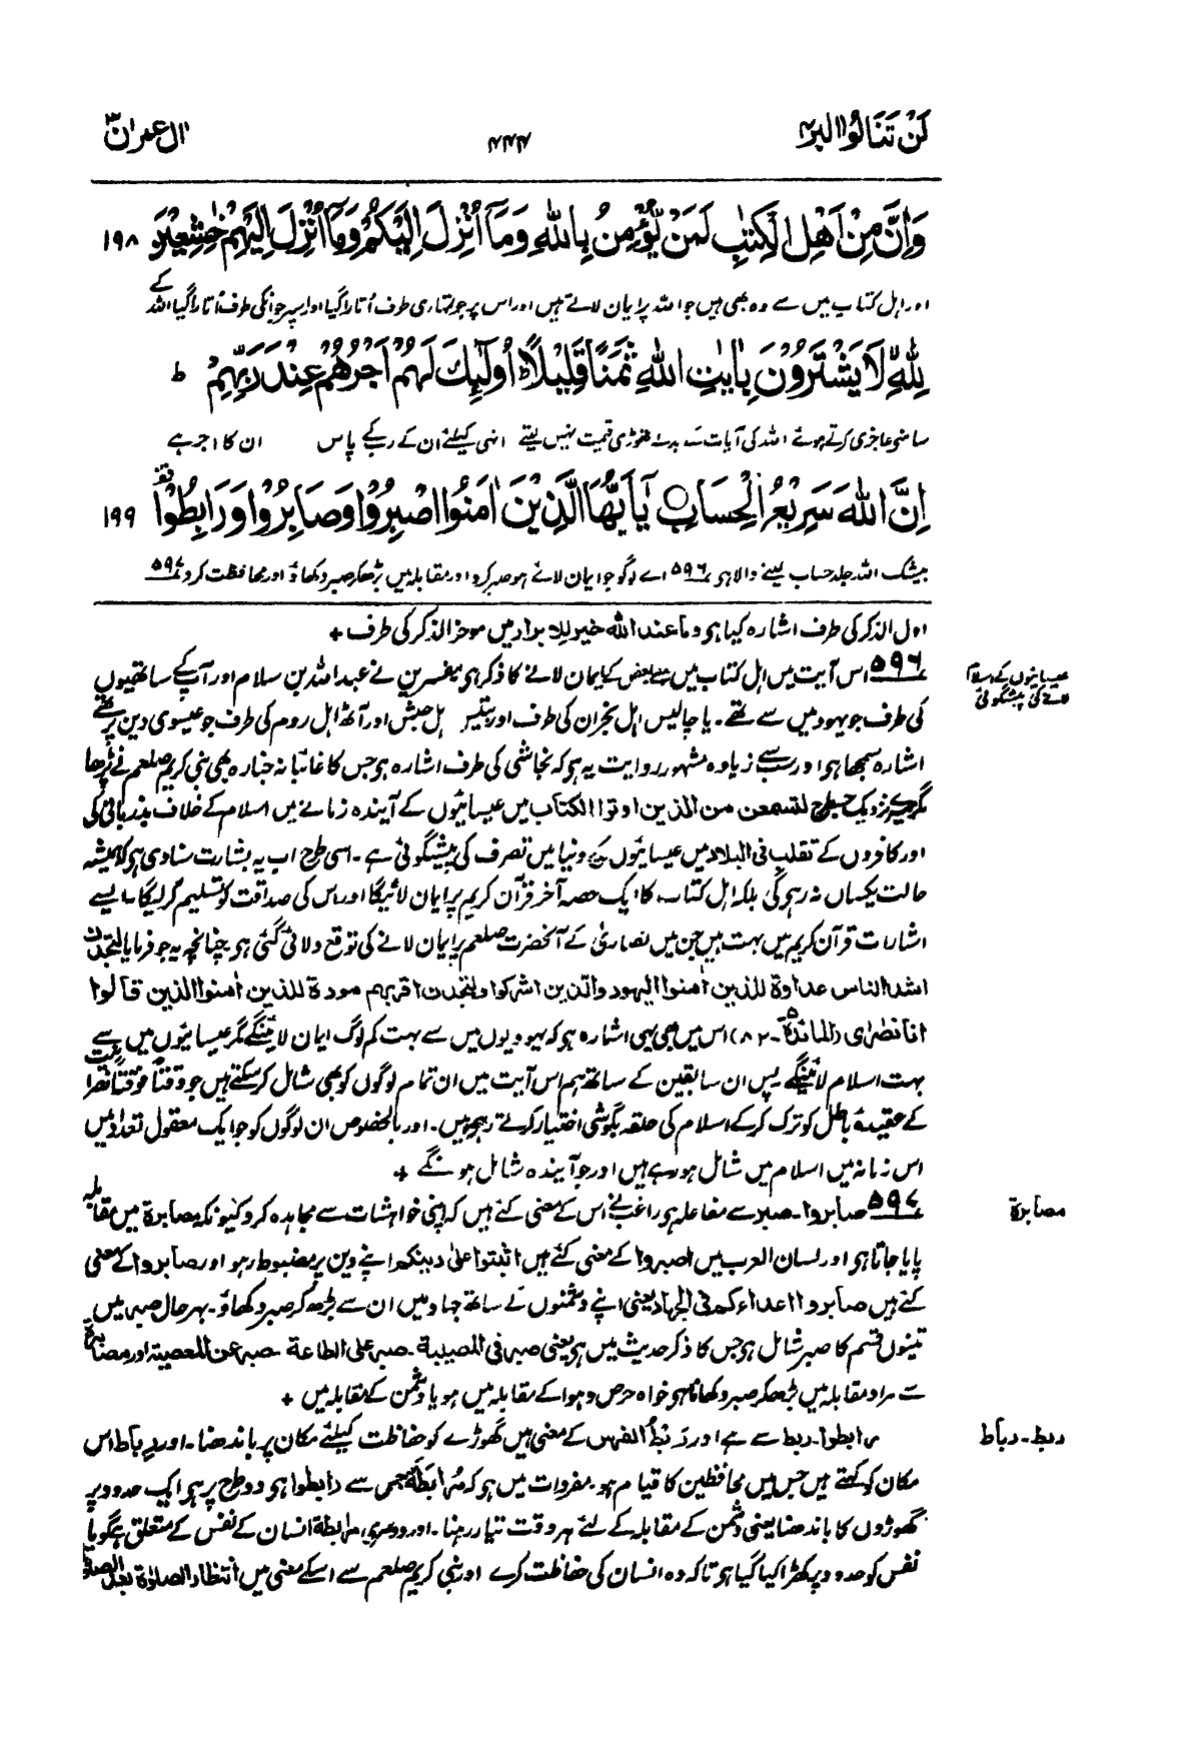 لَنْ تَنَالُوا الْبِرَّ ۴
۴۴۴
اٰل عمرٰن ۳
وَاِنَّ مِنْ اَهْلِ الْكِتٰبِ لَمَنْ يُّؤْمِنُ بِاللّٰهِ وَمَآ اُنْزِلَ اِلَيْكُمْ وَمَآ اُنْزِلَ اِلَيْهِمْ خٰشِعِيْنَ ۱۹۸
اور اہل کتاب میں سے وہ بھی ہیں جو اللہ پر ایمان لاتے ہیں اور اس پر جو تمہاری طرف اُتارا گیا اور اسپر جو انکی طرف اُتارا گیا اللہ کے
لِلّٰهِ لَا يَشْتَرُوْنَ بِاٰيٰتِ اللّٰهِ ثَمَنًا قَلِيْلًا ؕ اُولٰٓئِكَ لَهُمْ اَجْرُهُمْ عِنْدَ رَبِّهِمْ ط
سامنے عاجزی کرتے ہوئے اللہ کی آیات کے بدلے تھوڑی قیمت نہیں لیتے انہی کیلئے ان کے رب کے پاس ان کا اجر ہے
اِنَّ اللّٰهَ سَرِيْعُ الْحِسَابِ ○ يٰٓاَيُّهَا الَّذِيْنَ اٰمَنُوا اصْبِرُوْا وَصَابِرُوْا وَرَابِطُوْا ۱۹۹
بیشک اللہ جلد حساب لینے والا ہو ۵۹۶ اے لوگو جو ایمان لائے ہو صبر کرو اور مقابلہ میں بڑھکر صبر دکھاؤ اور محافظت کرو ۵۹۷
اول الذکر کی طرف اشارہ کیا ہو وما عند اللہ خیر للابرار میں موخر الذکر کی طرف +
۵۹۶ اس آیت میں اہل کتاب میں سے بعض کے ایمان لانے کا ذکر ہو مفسرین نے عبد اللہ بن سلام اور آپ کے ساتھیوں
کی طرف جو یہود میں سے تھے۔ یا چالیس اہل نجران کی طرف اور بتیس اہل حبش اور آٹھ اہل روم کی طرف جو عیسوی دین پر تھے
اشارہ سمجھا ہو اور سب سے زیادہ مشہور روایت یہ ہو کہ نجاشی کی طرف اشارہ ہو جس کا غائبانہ جنازہ بھی نبی کریم صلعم نے پڑھا
مگر میرے نزدیک جسطرح لتسمعن من الذین اوتوا الکتاب میں عیسائیوں کے آیندہ زمانے میں اسلام کے خلاف بدزبانی کی
اور کافروں کے تقلب فی البلاد میں عیسائیوں کے دنیا میں تصرف کی پیشگوئی ہے۔ اسی طرح اب یہ بشارت سنا دی ہو کہ ہمیشہ
حالت یکساں نہ رہیگی بلکہ اہل کتاب کا ایک حصہ آخر قرآن کریم پر ایمان لائیگا اور اس کی صداقت کو تسلیم کر لیگا۔ ایسے
اشارات قرآن کریم میں بہت ہیں جن میں نصاریٰ کے آنحضرت صلعم پر ایمان لانے کی توقع دلائی گئی ہو چنانچہ یہ جو فرمایا لتجدن
اشد الناس عداوة للذین اٰمنوا الیہود والذین اشرکوا ولتجدن اقربہم مودة للذین اٰمنوا الذین قالوا
انا نصٰرٰی (المائدة ۵۔۸۲) اس میں بھی یہی اشارہ ہو کہ یہودیوں میں سے بہت کم لوگ ایمان لائینگے مگر عیسائیوں میں سے بہت
بہت اسلام لائینگے پس ان سابقین کے ساتھ ہم اس آیت میں ان تمام لوگوں کو بھی شامل کر سکتے ہیں جو وقتاً فوقتاً نصاریٰ
کے عقیدۂ باطل کو ترک کر کے اسلام کی حلقہ بگوشی اختیار کرتے رہے ہیں۔ اور بالخصوص ان لوگوں کو جو ایک معقول تعداد میں
اس زمانہ میں اسلام میں شامل ہو رہے ہیں اور جو آیندہ شامل ہونگے +
عیسائیوں کے اسلام
لانے کی پیشگوئی
۵۹۷ صابروا۔ صبر سے مفاعلہ ہو راغب نے اس کے معنی کئے ہیں کہ اپنی خواہشات سے مجاہدہ کرو کیونکہ مصابرة میں مقابلہ
پایا جاتا ہو اور لسان العرب میں اصبروا کے معنی کئے ہیں اثبتوا علیٰ دینکم اپنے دین پر مضبوط رہو اور صابروا کے معنی
کئے ہیں صابروا اعداءکم فی الجہاد یعنی اپنے دشمنوں کے ساتھ جہاد میں ان سے بڑھ کر صبر دکھاؤ۔ بہر حال صبر میں
تینوں قسم کا صبر شامل ہو جس کا ذکر حدیث میں ہو یعنی صبر فی المصیبة۔ صبر علی الطاعة۔ صبر عن المعصیة اور مصابرة
سے مراد مقابلہ میں بڑھکر صبر دکھانا ہو خواہ حرص و ہوا کے مقابلہ میں ہو یا دشمن کے مقابلہ میں +
مصابرة
رابطوا۔ ربط سے ہے اور رَبْطُ الفرس کے معنی ہیں گھوڑے کو حفاظت کیلئے مکان پر باندھنا۔ اور رِباط اس
مکان کو کہتے ہیں جس میں محافظین کا قیام ہو۔ مفردات میں ہو کہ مُرابَطَة جس سے رابطوا ہو دو طرح پر ہو ایک حدود پر
گھوڑوں کا باندھنا یعنی دشمن کے مقابلہ کے لئے ہر وقت تیار رہنا۔ اور دوسری مرابطة انسان کے نفس کے متعلق ہے گویا
نفس کو حدود پر کھڑا کیا گیا ہو تاکہ وہ انسان کی حفاظت کرے اور نبی کریم صلعم سے اسکے معنی میں انتظار الصلوٰة بعد الصلوٰة
ربط۔ رباط